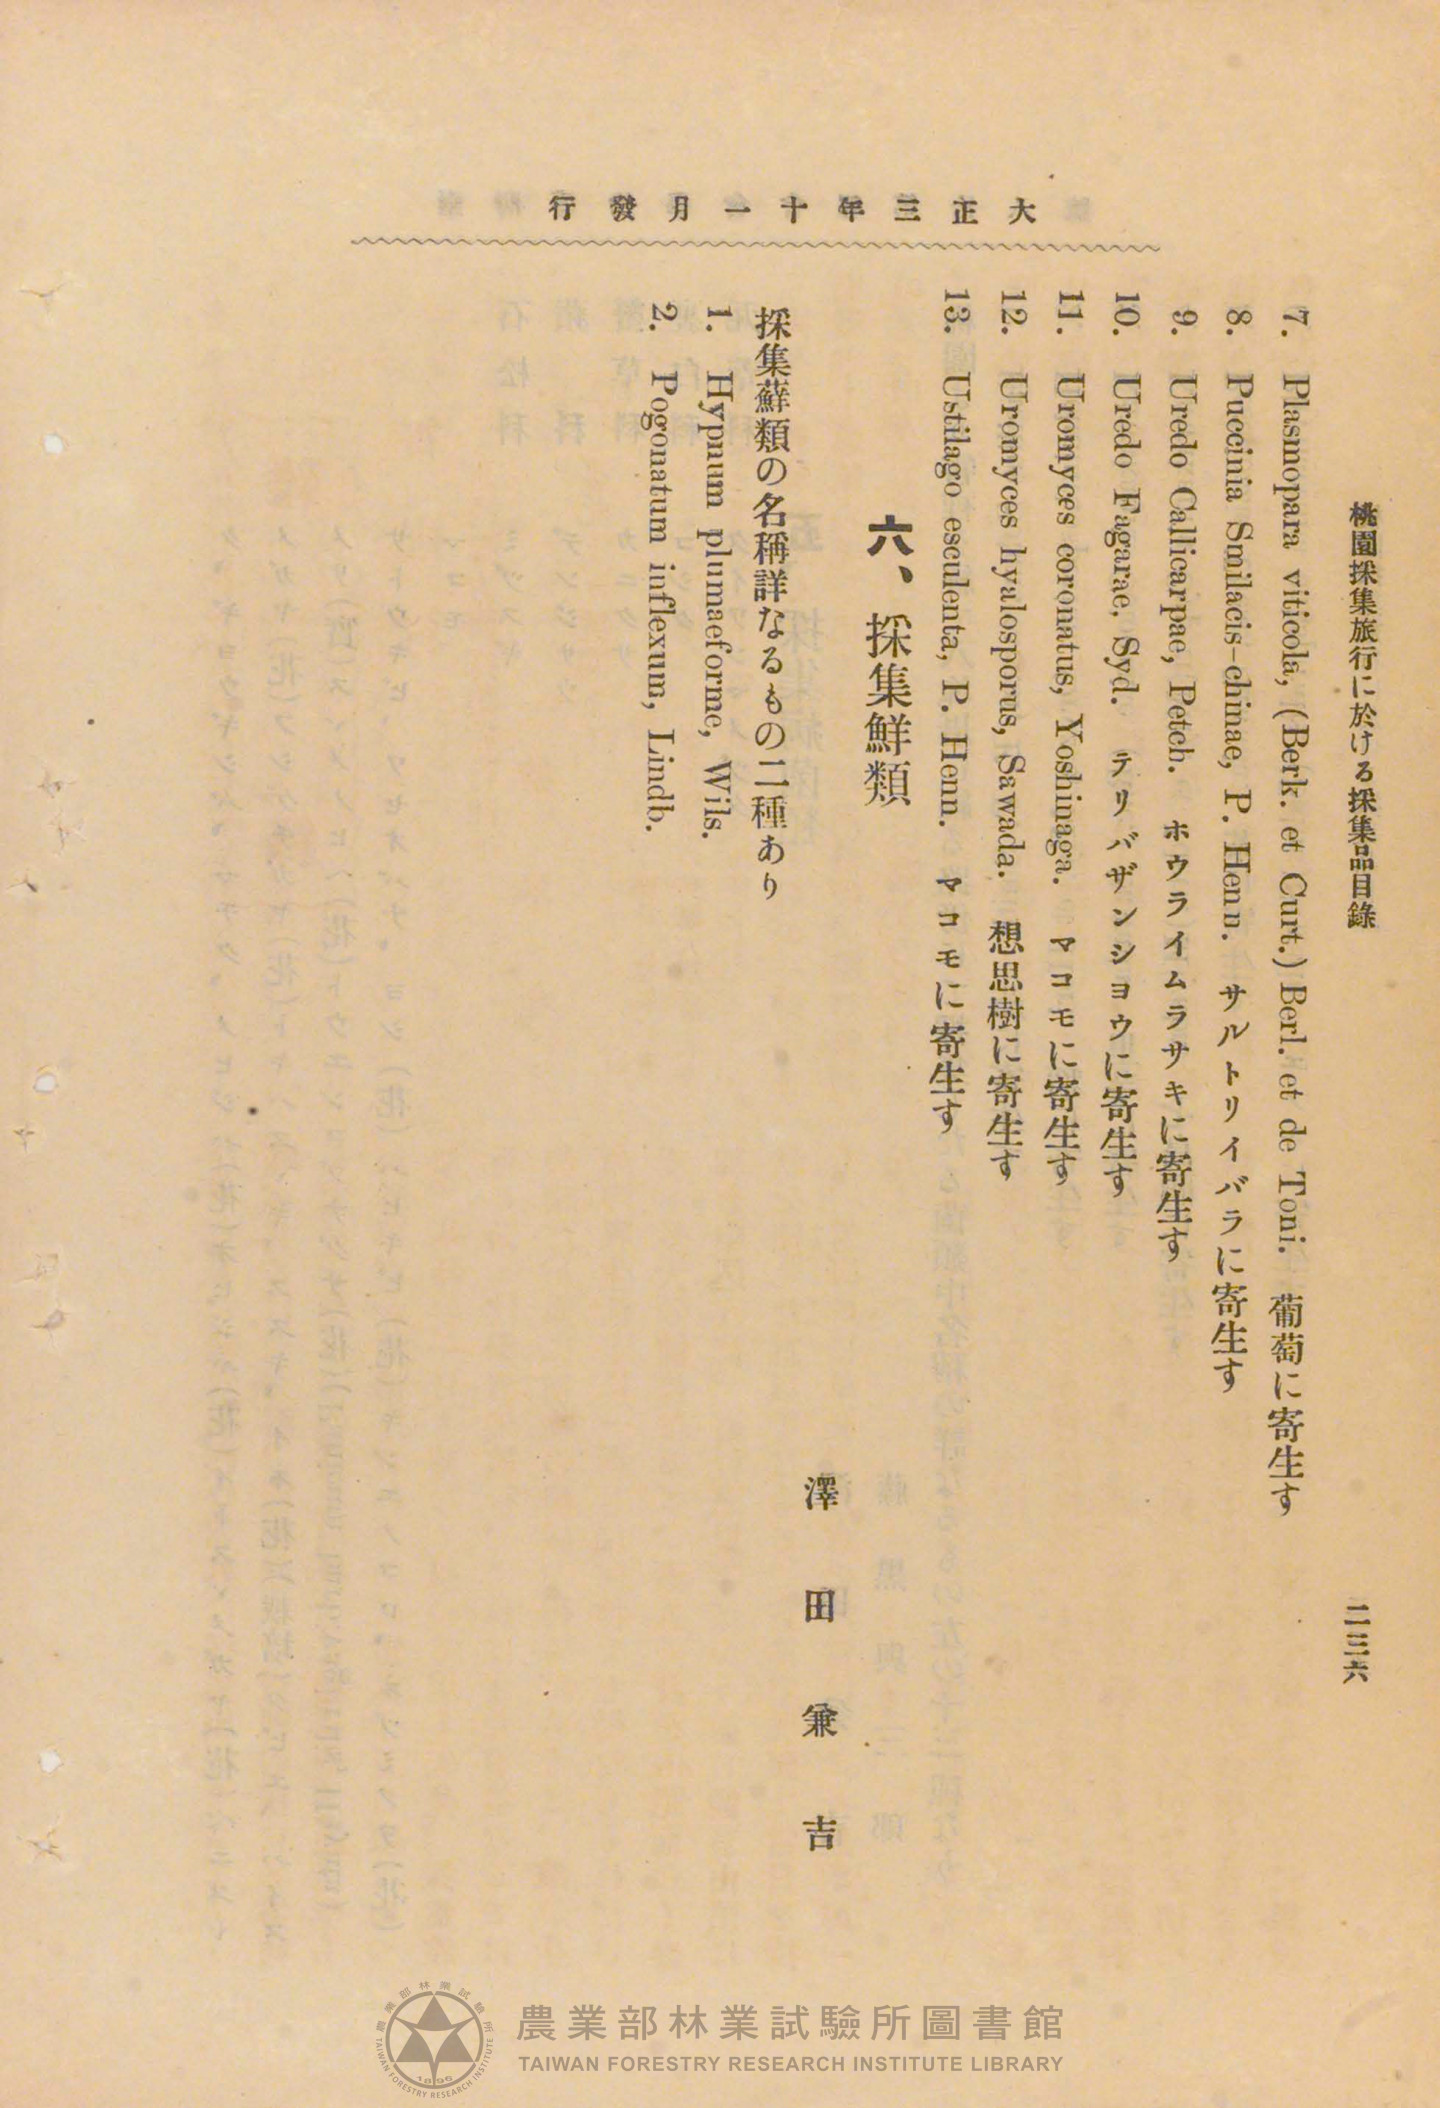 大正三年十一月發行
桃園採集旅行に於ける採集品目錄
二三六
7. Plasmopara viticola, (Berk. et Curt.) Berl. et de Toni. 葡萄に寄生す
8. Puccinia Smilacis-chinae, P. Henn. サルトリイバラに寄生す
9. Uredo Callicarpae, Petch. ホウライムラサキに寄生す
10. Uredo Fagarae, Syd. テリバザンシヨウに寄生す
11. Uromyces coronatus, Yoshinaga. マコモに寄生す
12. Uromyces hyalosporus, Sawada. 想思樹に寄生す
13. Ustilago esculenta, P. Henn. マコモに寄生す
六、採集鮮類
澤田兼吉
採集蘚類の名稱詳なるもの二種あり
1. Hypnum plumaeforme, Wils.
2. Pogonatum inflexum, Lindb.
農業部林業試驗所圖書館
TAIWAN FORESTRY RESEARCH INSTITUTE LIBRARY
農業部林業試驗所
TAIWAN FORESTRY RESEARCH INSTITUTE
1896